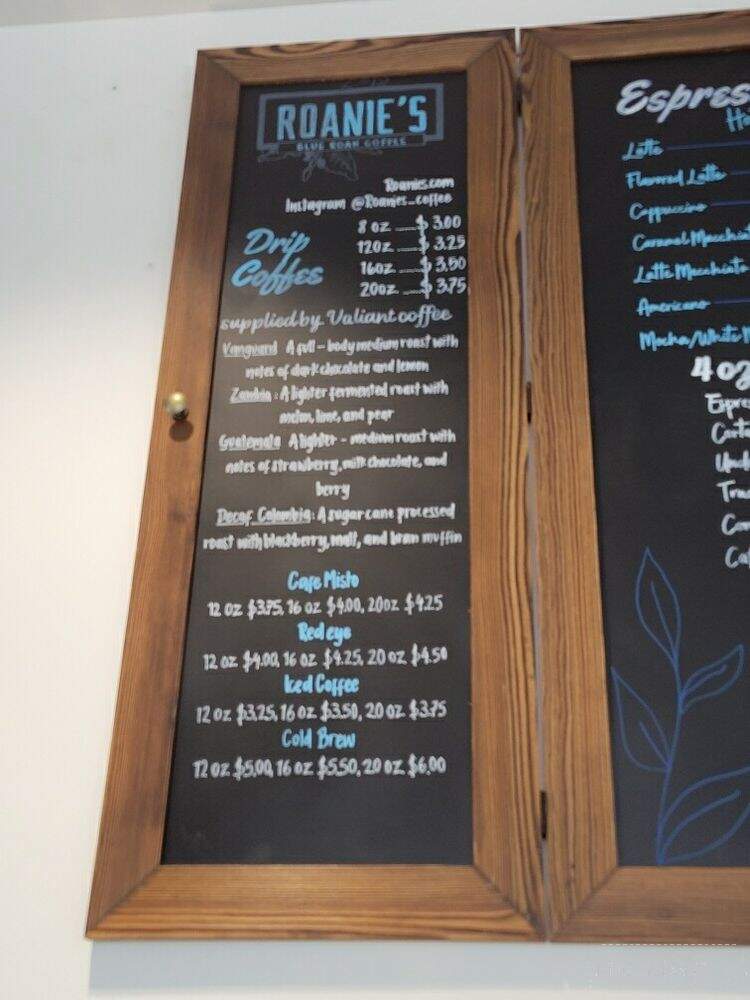 ROANIE'S
BLUE ROAN COFFEE
Roanies.com
Instagram @Roanies_coffee
Drip
Coffee
8 oz ..... $ 3.00
12oz ..... $ 3.25
16oz ..... $ 3.50
20oz ..... $ 3.75
supplied by Valiant coffee
Vanguard A full - body medium roast with
notes of dark chocolate and lemon
Zambia : A lighter fermented roast with
melon, lime, and pear
Guatemala A lighter - medium roast with
notes of strawberry, milk chocolate, and
berry
Decaf Colombia: A sugar cane processed
roast with blackberry, malt, and bran muffin
Cafe Misto
12 oz $3.75, 16 oz $4.00, 20oz $4.25
Red eye
12 oz $4.00, 16 oz $4.25, 20 oz $4.50
Iced Coffee
12 oz $3.25, 16 oz $3.50, 20 oz $3.75
Cold Brew
12 oz $5.00, 16 oz $5.50, 20 oz $6.00
Espres
Latte
Flavored Latte
Cappuccino
Caramel Macchiat
Latte Macchiato
Americano
Mocha/White M
4 oz
Espre
Corta
Tra
Co
Ca